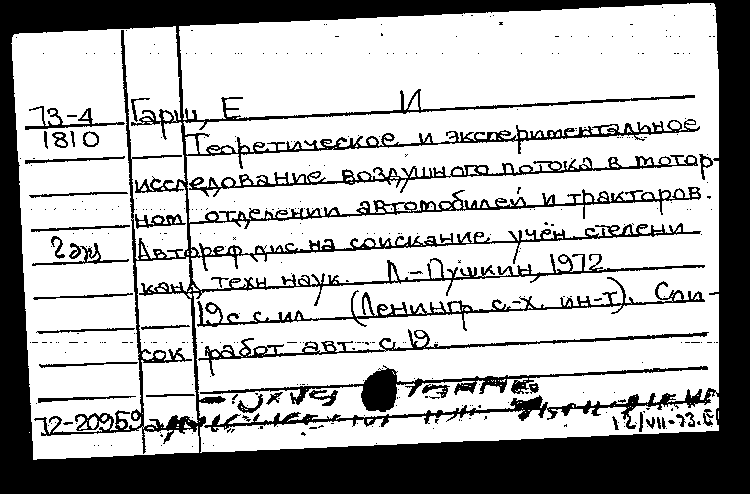 73-4 Гарш, Е И
1810 Теоретическое и экспериментальное
исследование воздушного потока в мотор-
ном отделении автомобилей и тракторов.
2 экз Автореф дис на соискание учён степени
канд техн наук. Л.-Пушкин, 1972.
19с с ил (Ленингр с.-х. ин-т). Спи-
сок работ авт. с 19.
72-20959
12/VII-73.